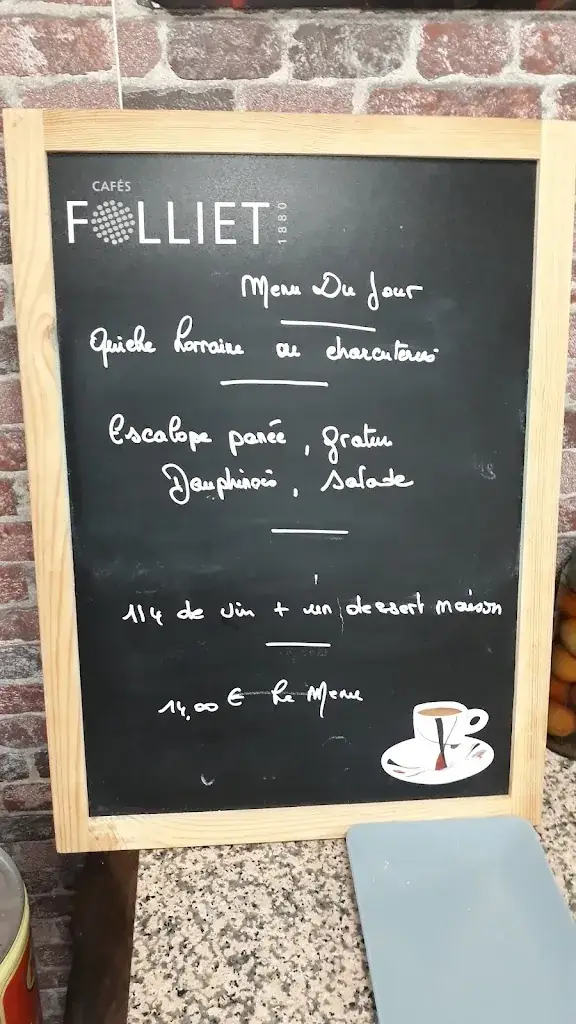 CAFÉS
FOLLIET 1880
Menu Du Jour
Quiche Lorraine ou charcuteries
Escalope panée, gratin
Dauphinois, salade
1/4 de vin + un dessert maison
14,00 € Le Menu